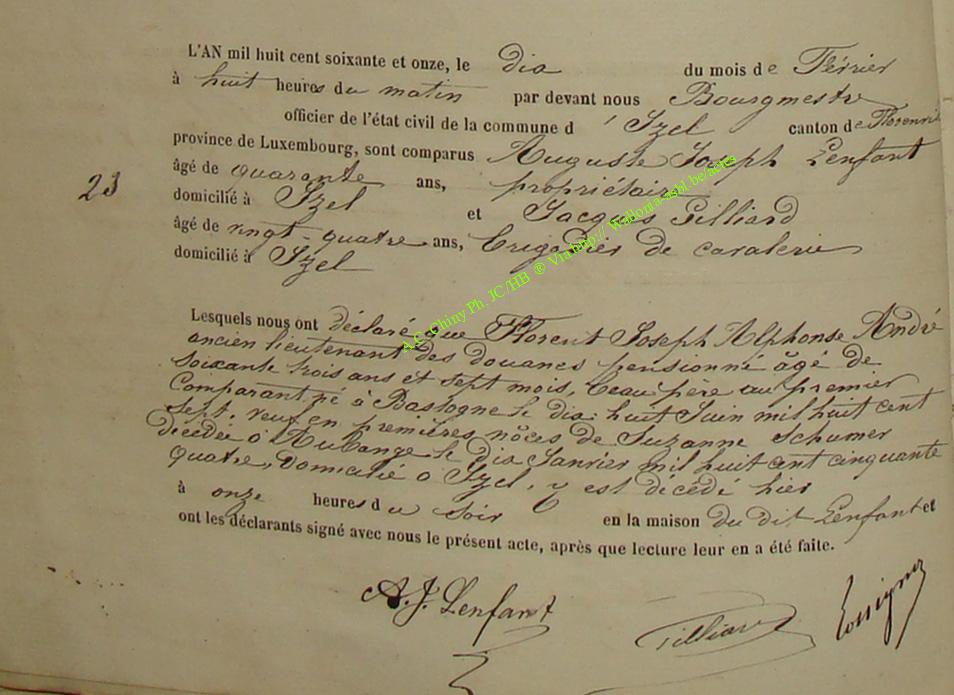 L'AN mil huit cent soixante et onze, le dix du mois de Février
à huit heures du matin par devant nous Bourgmestre
officier de l'état civil de la commune d'Izel canton de Florenville
province de Luxembourg, sont comparus Auguste Joseph Lenfant
âgé de quarante ans, propriétaire
23
domicilié à Izel et Jacques Gilliard
âgé de vingt-quatre ans, brigadier de cavalerie
domicilié à Izel
Lesquels nous ont déclaré que Florent Joseph Alphonse André
ancien lieutenant des douanes pensionné âgé de
soixante trois ans et sept mois, beau père au premier
comparant né à Bastogne le dix huit Juin mil huit cent
sept, veuf en premières nôces de Suzanne Schumer
décédée à Aubange le dix Janvier mil huit cent cinquante
quatre, domicilié à Izel, y est décédé hier
à onze heures du soir en la maison du dit Lenfant et
ont les déclarants signé avec nous le présent acte, après que lecture leur en a été faite.
A. J. Lenfant
Gilliard
A.C. Chiny Ph. JC/HB ® Via http:// Wallonia-asbl.be/actes